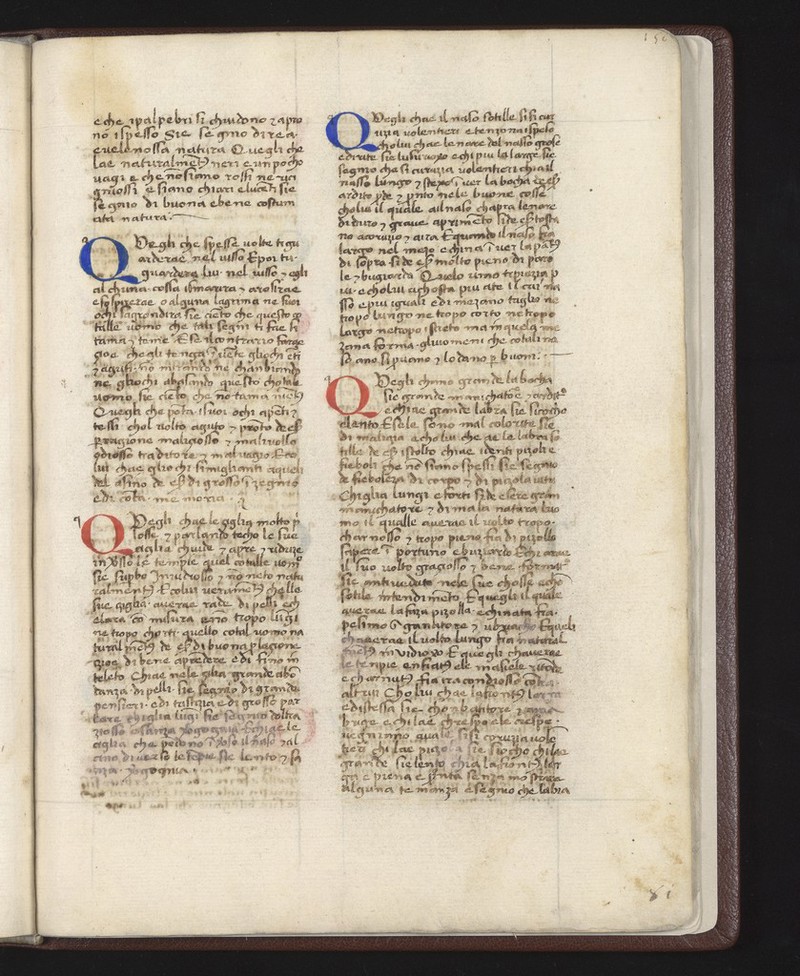 150
e che i palpebri si chiudono ⁊ apro
no ispesso Sie segno di rea
e vele nossa natura Quegli che
lae naturalmēte neri e un pocho
vagi e che no siano rossi ne
grossi e siano chiari e lucēti sie
segno di buona e bene costum
ata natura
Quegli che spesse volte ti gu
arderae nel visso E poi tu
guarderae lui nel visso ⁊ egli
alchuna cossa
e sospirerae o alguna lagrima ne suoi
ochi sie cierto che questo
uomo che tali segni ti fae ti
tama ⁊ teme E se il contrario farae
cioe che gli tengha gliochi
no mirando ne chambiando
ne gliochi abasando questo chotale
uomo sie cierto che no tama niēte
Quegli che porta i suoi ochi aperti ⁊
chol volto aguto ⁊ pronto de eser
maligiosso ⁊ malivollo
odiosso traditore ⁊ malvagio E co
lui chae gliochi simiglianti aquelli
del asino de eser di grosso ingegnio
e di
Quegli chae le ciglia molto pi
losse ⁊ parlando techo le sue
ciglia chiude ⁊ apre ⁊ riduze
in verso le tempie quel cotalle uomo
sie supbo invidiosso ⁊ no neto natu
ralmente E colui veramente che le
sue ciglia averae rade di pelli ech
elara co misura no tropo lungi
ne tropo chorti quello cotal uomo na
turalmente de eser di buona
di bene aprēdere e di fino in
teleto Chiae nele cilia grande abō
danza di pelli sie segnio di grande
pensieri e di tristizia e di grosso par
lare chiglia lungi sie segnio doltra
ziosso e sanza vergognia E chiae le
ciglia che pendono inverso il naso ⁊ al
cino diverso le tēpie sie lento ⁊ sa
nza vergognia
Quegli chae il naso sotille si si cor
uzia volentieri e tenzona ispeso
Cholui chae le nare del nasso grose
e dirate sie lusurioxo e chi piu la large sie
segnio che si coruzia volentieri chiae il
nasso lungo ⁊ steso inver la bocha de eser
ardito ⁊ pnto nele buone cosse
cholui il quale ail naso chapra le nare
di duro ⁊ grave aprimēto side eser tosta
no acoruzio ⁊ aira E quando il naso fia
largo nel mezo e china inver la parte
di sopra side eser molto pieno di paro
le ⁊ bugiardo Quelo uomo p
iu e cholui achosta piu ate il cui na
sso e piu iguali e di mezano taglio ne
tropo lungo ne tropo corto ne tropo
largo ne tropo istreto ma in quela me
zana forma gli uomeni che cotali na
so ano si pruovano ⁊ lodano p buoni
Quegli chano grande la bocha
sie grande manichatore ⁊ ardito
e chiae grande labra sie sciocho
e lento E se le sono mal colorite sie
di malizia a cholui che ae le labra so
tille de eser istolto chiae i denti pizoli e
fieboli che no siano spessi sie segnio
de fieboleza di corpo ⁊ di pizola vita
Chiglia lungi e forti side esere gran
manichatore ⁊ di mala natura luo
mo il qualle averae il volto tropo
charnosso ⁊ tropo pieno fia di pizollo
sapere inportuno e busiardo E chi arae
il suo volto graziosso ⁊ bene formato
sie antiveduto nele sue chosse e cho
sotile intendimeto E quegli il quale
averae la faza pizolla e chinata fia
pesimo inganatore ⁊ ubriacho E queli
chaverae il volto lungo fia natural
mente invidioxo E quegli chaverae
le tenpie enfiate e le masiele
e charnute fia iracondiosso contra
altrui Cholui chae la fronte
e distessa sie chonbatitore ⁊
e chi lae chrespa e le ciespe
si si coruzia volē
tieri chi lae pizola sie siocho chi lae
grande sie lento chia la fronte lar
ga e piena senza mostrare
alguna temanza e segnio che labia
81